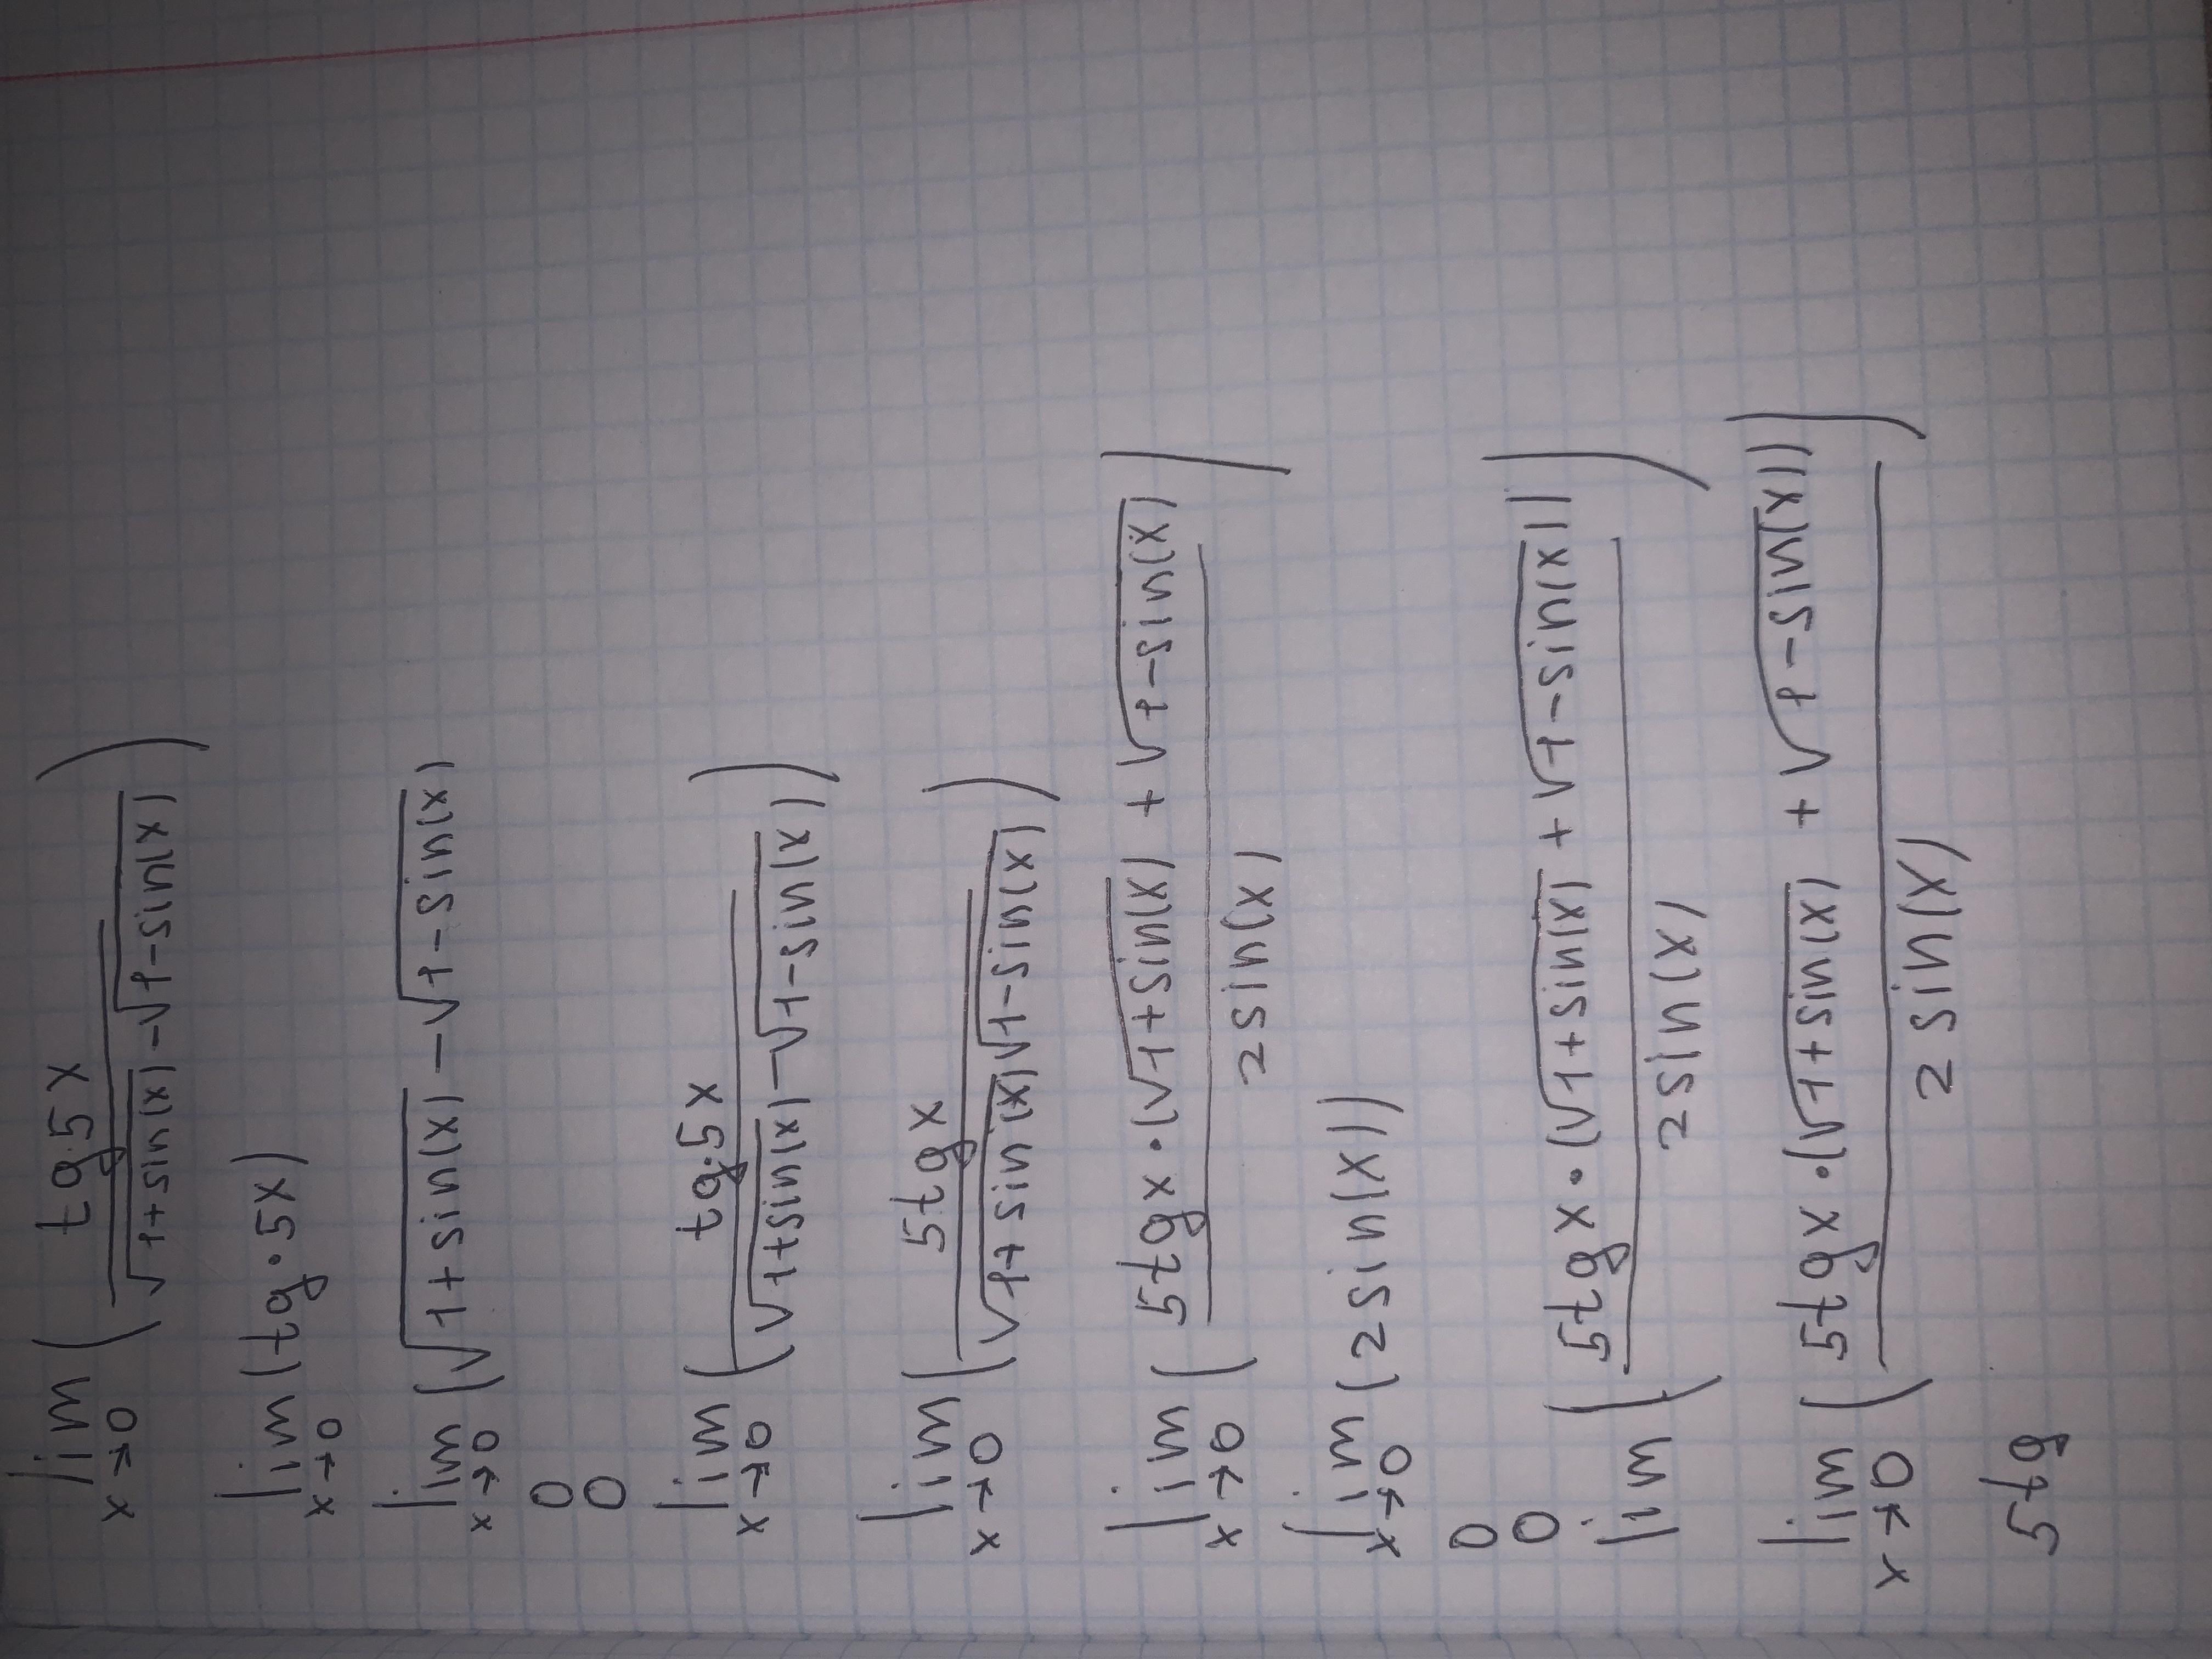 lim ( tg·5x / √1+sin(x) − √1−sin(x) )
x→0
lim (tg·5x)
x→0
lim (√1+sin(x) − √1−sin(x)
x→0
0
0
lim ( tg·5x / √1+sin(x) − √1−sin(x) )
x→0
lim ( 5tgx / √1+sin(x) √1−sin(x) )
x→0
lim ( 5tgx·(√1+sin(x) + √1−sin(x) / 2sin(x) )
x→0
lim (2sin(x))
x→0
0
0
lim ( 5tgx·(√1+sin(x) + √1−sin(x)) / 2sin(x) )
lim ( 5tgx·(√1+sin(x) + √1−sin(x)) / 2sin(x) )
x→0
5tg